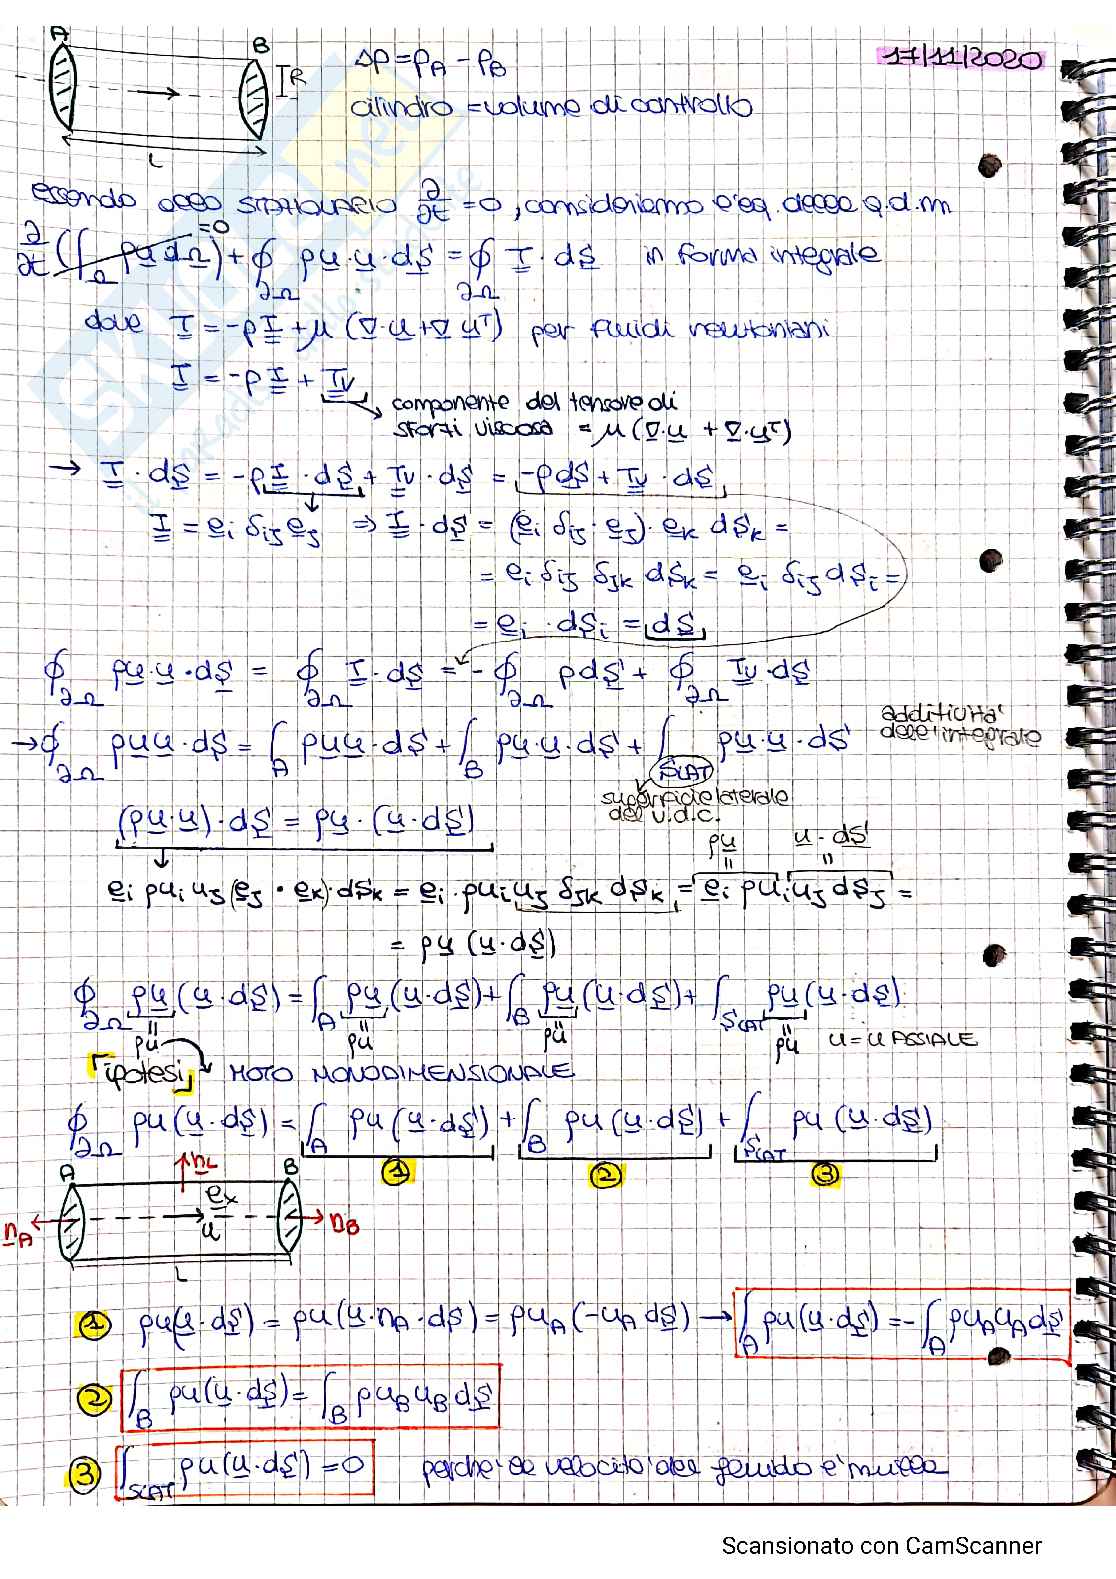 17/11/2020
A B
ΔP = PA - PB
R
cilindro = volume di controllo
L
essendo caso STAZIONARIO ∂/∂t = 0, consideriamo l'eq. della Q.d.m
∂/∂t (∫Ω ρu dΩ) =0 + ∮∂Ω ρu·u·dS = ∮∂Ω T·dS in forma integrale
dove T = -pI + μ(∇·u + ∇u^T) per fluidi newtoniani
T = -pI + Tv
componente del tensore di
sforzi viscosa = μ(∇·u + ∇·u^T)
→ T·dS = -pI·dS + Tv·dS = -pdS + Tv·dS
I = ei δij ej ⇒ I·dS = (ei δij·ej)·ek dSk =
= ei δij δjk dSk = ei δij dSi =
= ei·dSi = dS
∮∂Ω ρu·u·dS = ∮∂Ω T·dS = -∮∂Ω pdS + ∮∂Ω Tv·dS
→ ∮∂Ω ρuu·dS = ∫A ρuu·dS + ∫B ρu·u·dS + ∫SLAT ρu·u·dS additività dell'integrale
superficie laterale
del v.d.c.
(ρu·u)·dS = ρu·(u·dS)
ρu u·dS
ei ρui uj (ej·ek)·dSk = ei·ρui uj δjk dSk = ei ρui uj dSj =
= ρu (u·dS)
∮∂Ω ρu(u·dS) = ∫A ρu(u·dS) + ∫B ρu(u·dS) + ∫SLAT ρu(u·dS)
ρu ρu ρu ρu u = u ASSIALE
ipotesi MOTO MONODIMENSIONALE
∮∂Ω ρu(u·dS) = ∫A ρu(u·dS) + ∫B ρu(u·dS) + ∫SLAT ρu(u·dS)
1 2 3
A nL B
ex
nA u nB
L
1 ρu(u·dS) = ρu(u·nA·dS) = ρuA(-uA dS) → ∫A ρu(u·dS) = -∫A ρuAuA dS
2 ∫B ρu(u·dS) = ∫B ρuBuB dS
3 ∫SLAT ρu(u·dS) = 0 perché la velocità del fluido è nulla
Scansionato con CamScanner